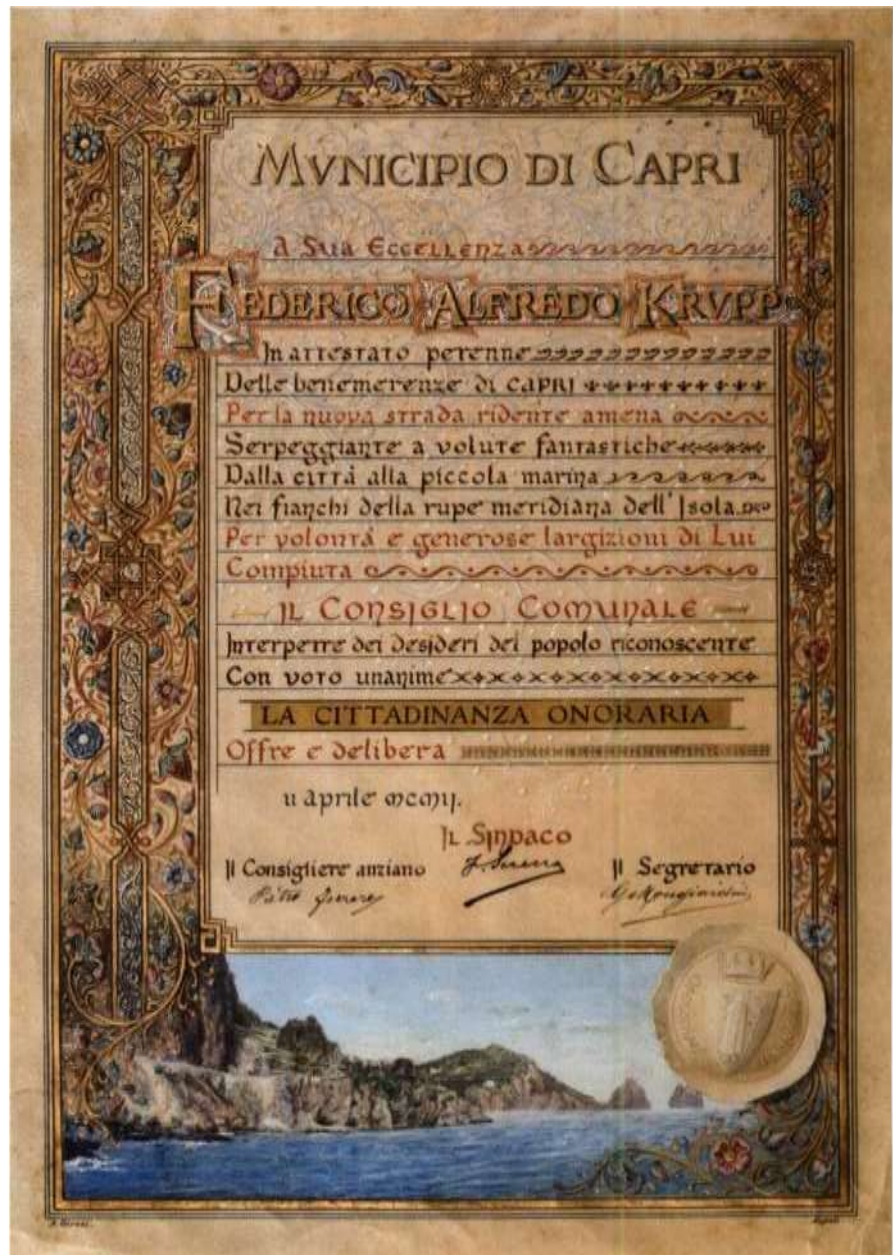 MVNICIPIO DI CAPRI
A Sua Eccellenza
FEDERICO ALFREDO KRVPP
In attestato perenne
Delle benemerenze di CAPRI
Per la nuova strada ridente amena
Serpeggiante a volute fantastiche
Dalla città alla piccola marina
Nei fianchi della rupe meridiana dell'Isola
Per volontà e generose largizioni di Lui
Compiuta
IL CONSIGLIO COMUNALE
Interpetre dei desideri del popolo riconoscente
Con voto unanime
LA CITTADINANZA ONORARIA
Offre e delibera
11 aprile MCMII.
IL SINDACO
Il Consigliere anziano
Il Segretario
Napoli